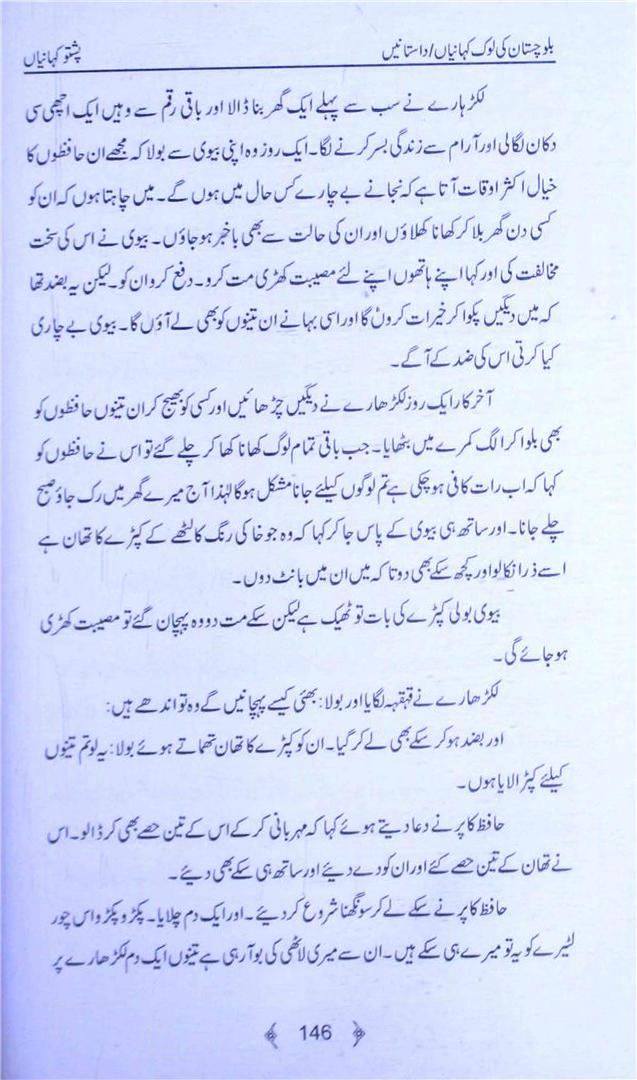 بلوچستان کی لوک کہانیاں/داستانیں
پشتو کہانیاں
لکڑہارے نے سب سے پہلے ایک گھر بنا ڈالا اور باقی رقم سے وہیں ایک اچھی سی
دکان لگالی اور آرام سے زندگی بسر کرنے لگا۔ ایک روز وہ اپنی بیوی سے بولا کہ مجھے ان حافظوں کا
خیال اکثر اوقات آتا ہے کہ نجانے بے چارے کس حال میں ہوں گے۔ میں چاہتا ہوں کہ ان کو
کسی دن گھر بلا کر کھانا کھلاؤں اور ان کی حالت سے بھی باخبر ہو جاؤں۔ بیوی نے اس کی سخت
مخالفت کی اور کہا اپنے ہاتھوں اپنے لئے مصیبت کھڑی مت کرو۔ دفع کرو ان کو۔ لیکن یہ بضد تھا
کہ میں دیگیں پکوا کر خیرات کروں گا اور اسی بہانے ان تینوں کو بھی لے آؤں گا۔ بیوی بے چاری
کیا کرتی اس کی ضد کے آگے۔
آخر کار ایک روز لکڑہارے نے دیگیں چڑھائیں اور کسی کو بھیج کر ان تینوں حافظوں کو
بھی بلوا کر الگ کمرے میں بٹھایا۔ جب باقی تمام لوگ کھانا کھا کر چلے گئے تو اس نے حافظوں کو
کہا کہ اب رات کافی ہو چکی ہے تم لوگوں کیلئے جانا مشکل ہوگا لہٰذا آج میرے گھر میں رک جاؤ صبح
چلے جانا۔ اور ساتھ ہی بیوی کے پاس جا کر کہا کہ وہ جو خاکی رنگ کا لٹھے کے کپڑے کا تھان ہے
اسے ذرا نکالو اور کچھ سکے بھی دو تا کہ میں ان میں بانٹ دوں۔
بیوی بولی کپڑے کی بات تو ٹھیک ہے لیکن سکے مت دو وہ پہچان گئے تو مصیبت کھڑی
ہو جائے گی۔
لکڑہارے نے قہقہہ لگایا اور بولا: بھئی کیسے پہچانیں گے وہ تو اندھے ہیں:
اور بضد ہو کر سکے بھی لے کر گیا۔ ان کو کپڑے کا تھان تھماتے ہوئے بولا: یہ لو تم تینوں
کیلئے کپڑا لایا ہوں۔
حافظ کاپر نے دعا دیتے ہوئے کہا کہ مہربانی کر کے اس کے تین حصے بھی کر ڈالو۔ اس
نے تھان کے تین حصے کئے اور ان کو دے دیئے اور ساتھ ہی سکے بھی دیئے۔
حافظ کاپر نے سکے لے کر سونگھنا شروع کر دیئے۔ اور ایک دم چلایا۔ پکڑو پکڑو اس چور
لٹیرے کو یہ تو میرے ہی سکے ہیں۔ ان سے میری لاٹھی کی بو آرہی ہے تینوں ایک دم لکڑہارے پر
146